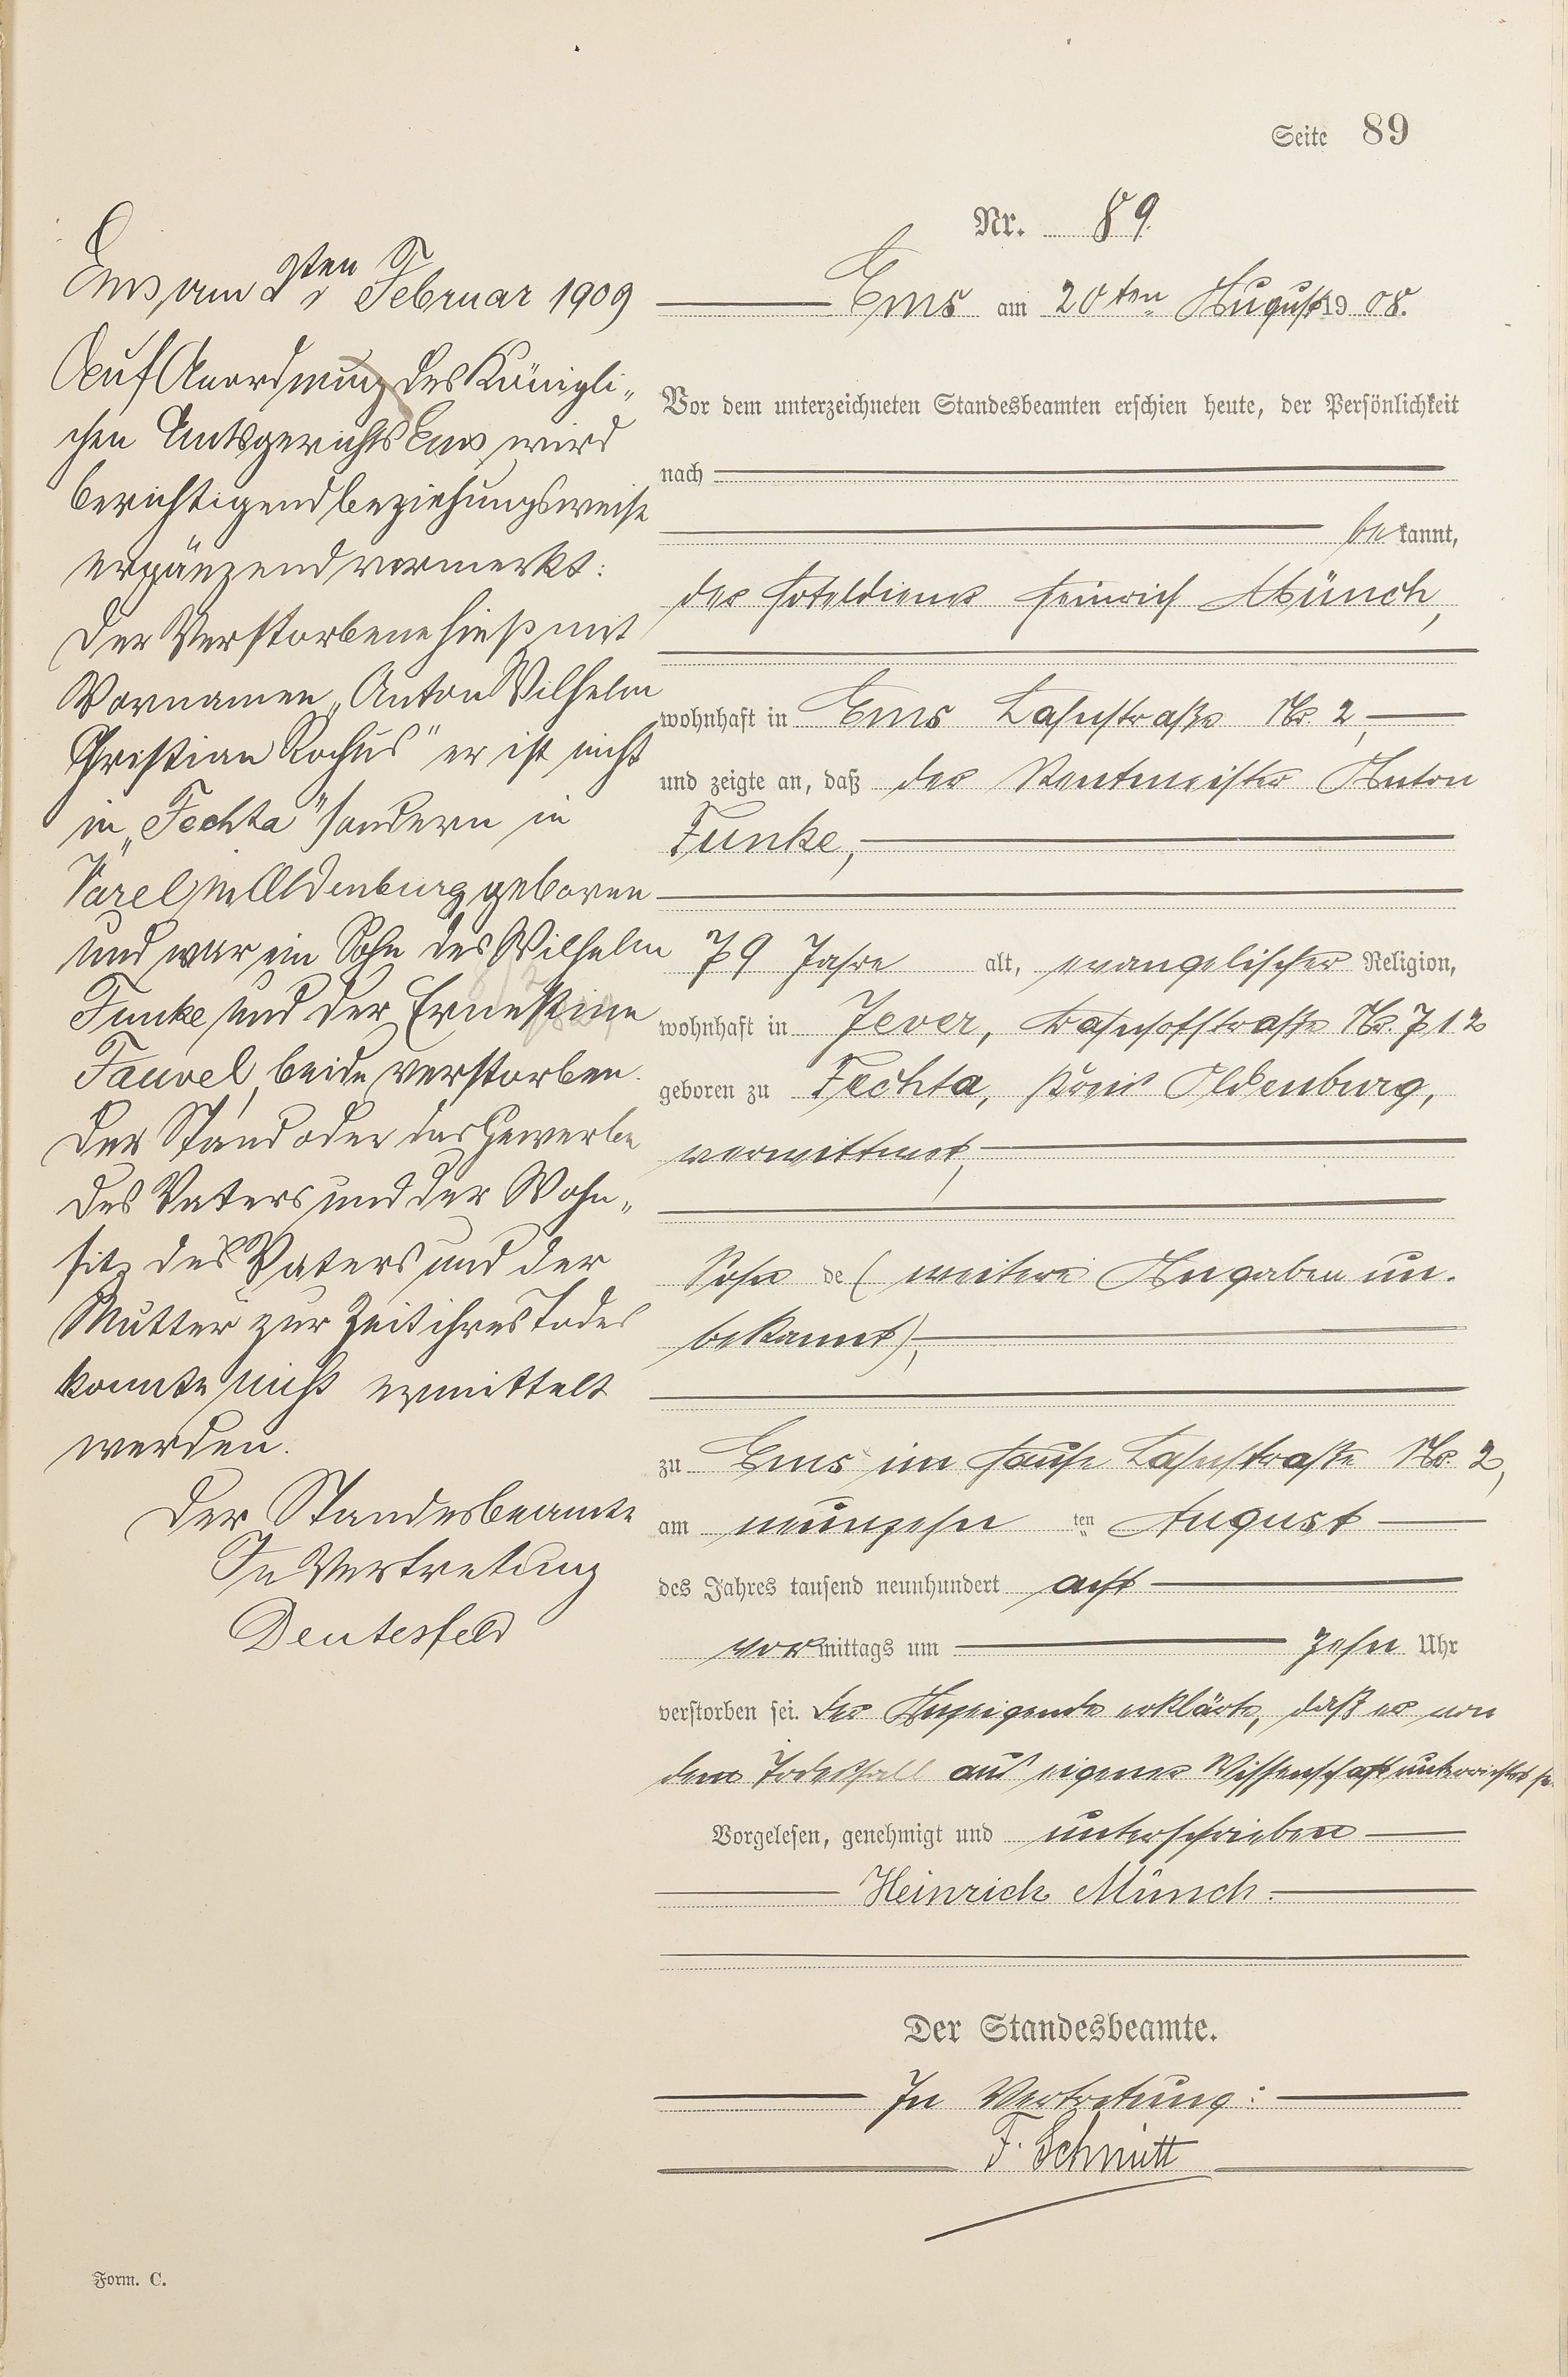 Seite 89
Nr. 89.
Ems am 20ten August 1908.
Vor dem unterzeichneten Standesbeamten erschien heute, der Persönlichkeit
nach
bekannt,
der Hoteldiener Heinrich Münch,
wohnhaft in Ems Lahnstraße Nr. 2,
und zeigte an, daß der Rentmeister Anton
Funke,
79 Jahre alt, evangelischer Religion,
wohnhaft in Jever, Bahnhofstraße Nr. 712
geboren zu Fechta, Kreis Oldenburg,
verwittwet,
Sohn de (weitere Angaben un-
bekannt),
zu Ems im Hause Lahnstraße Nr. 2,
am neunzehn ten August
des Jahres tausend neunhundert acht
vormittags um zehn Uhr
verstorben sei. Der Anzeigende erklärte, daß er von
dem Todesfall aus eigener Wissenschaft unterrichtet sei.
Vorgelesen, genehmigt und unterschrieben
Heinrich Münch.
Der Standesbeamte.
In Vertretung:
F. Schmitt
Ems am ten Februar 1909
Auf Anordnung des Königli-
chen Amtsgerichts Ems wird
berichtigend beziehungsweise
ergänzend vermerkt:
Der Verstorbene hieß mit
Vornamen „Anton Wilhelm
Christian Rochus" er ist nicht
in „Fechta" sondern in
Varel in Oldenburg geboren
und war ein Sohn des Wilhelm
Funke und der Ernestine
Fauvel, beide verstorben.
Der Stand oder das Gewerbe
des Vaters und der Wohn-
sitz des Vaters und der
Mutter zur Zeit ihres Todes
konnte nicht ermittelt
werden.
Der Standesbeamte
In Vertretung
Deutesfeld
Form. C.